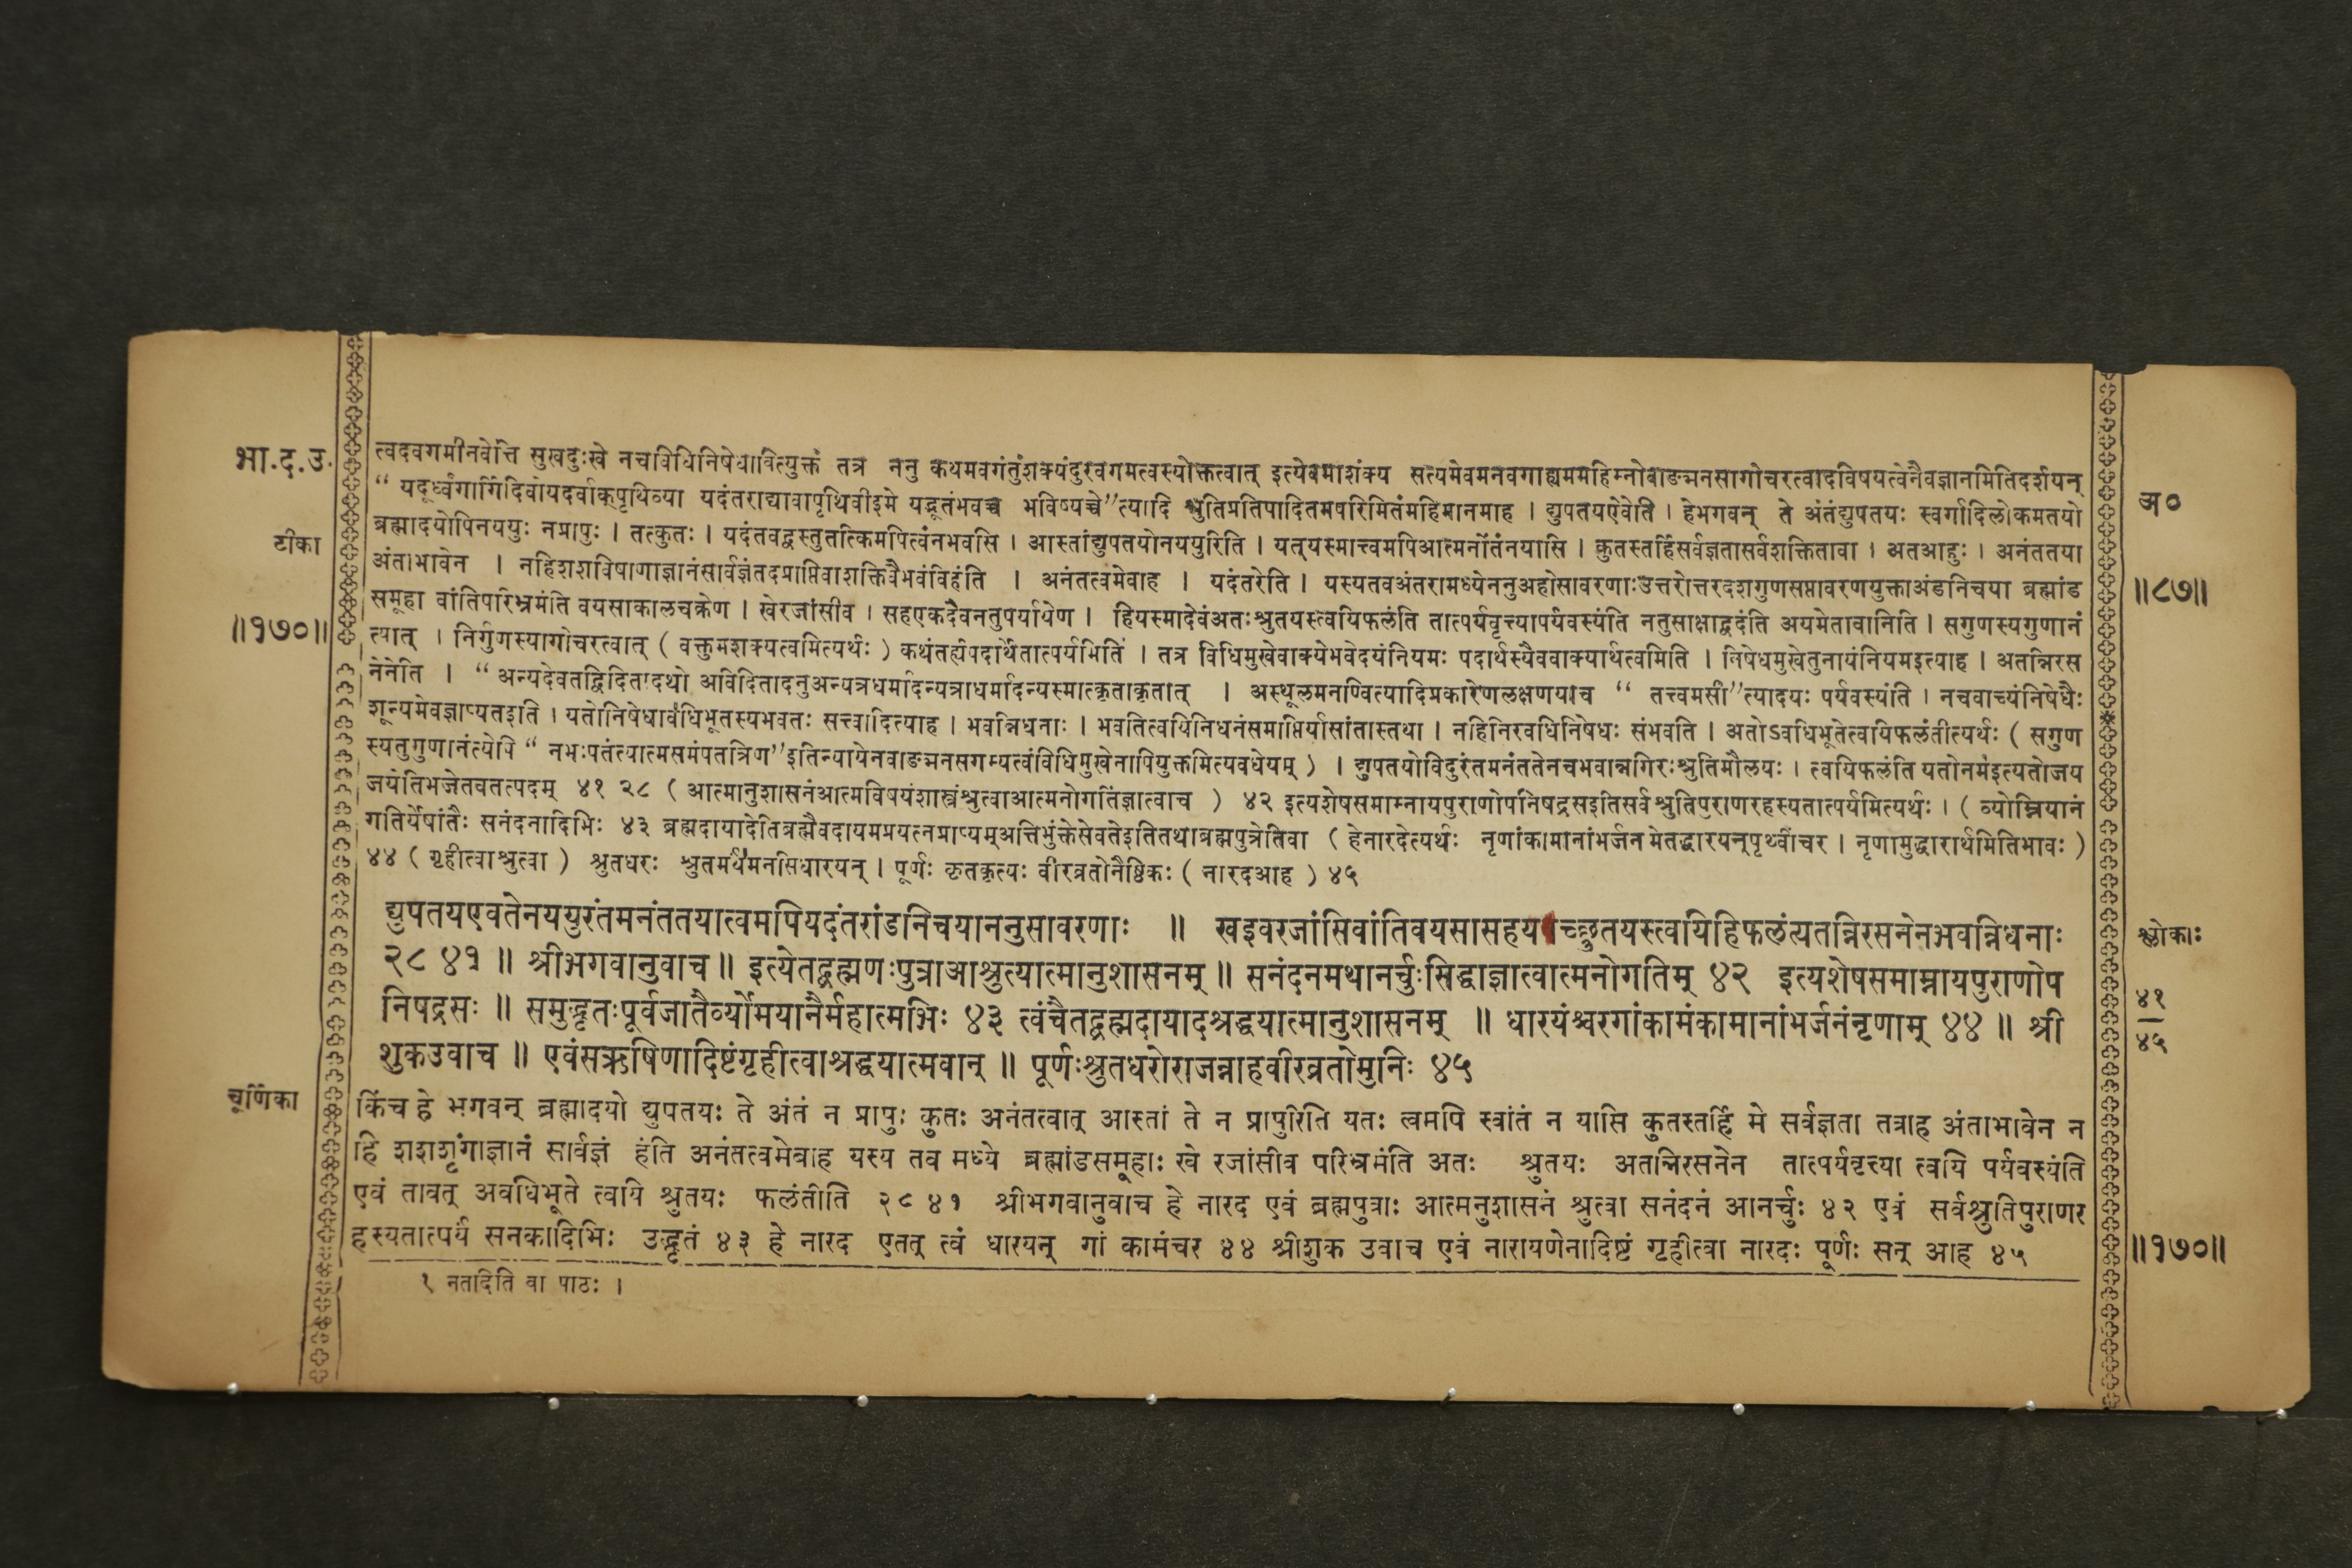 भा.द.उ.
टीका
॥१७०॥
त्वदवगमीनवेत्ति सुखदुःखे नचविधिनिषेधावित्युक्तं तत्र ननु कथमवगंतुंशक्यंदुरवगमत्वस्योक्तत्वात् इत्येवमाशंक्य सत्यमेवमनवगाह्यममहिम्नोवाङ्मनसागोचरत्वादविषयत्वेनैवज्ञानमितिदर्शयन्
“ यदूर्ध्वंगार्गिदिवोयदर्वाक्पृथिव्या यदंतराद्यावापृथिवीइमे यद्भूतंभवच्च भविष्यच्चे”त्यादि श्रुतिप्रतिपादितमपरिमितंमहिमानमाह । द्युपतयएवेति । हेभगवन् ते अंतंद्युपतयः स्वर्गादिलोकमतयो
ब्रह्मादयोपिनययुः नप्रापुः । तत्कुतः । यदंतवद्वस्तुतत्किमपित्वंनभवसि । आस्तांद्युपतयोनययुरिति । यत्यस्मात्त्वमपिआत्मनोंतंनयासि । कुतस्तर्हिसर्वज्ञतासर्वशक्तितावा । अतआहुः । अनंततया
अंताभावेन । नहिशशविषाणाज्ञानंसार्वज्ञंतदप्राप्तिवाशक्तिवैभवंविहंति । अनंतत्वमेवाह । यदंतरेति । यस्यतवअंतरामध्येननुअहोसावरणाःउत्तरोत्तरदशगुणसप्तावरणयुक्ताअंडनिचया ब्रह्मांड
समूहा वांतिपरिभ्रमंति वयसाकालचक्रेण । खेरजांसीव । सहएकदैवनतुपर्यायेण । हियस्मादेवंअतःश्रुतयस्त्वयिफलंति तात्पर्यवृत्त्यापर्यवस्यंति नतुसाक्षाद्वदंति अयमेतावानिति । सगुणस्यगुणानं
त्यात् । निर्गुणस्यागोचरत्वात् ( वक्तुमशक्यत्वमित्यर्थः ) कथंतर्ह्यपदार्थेतात्पर्यमिति । तत्र विधिमुखेवाक्येभवेदयंनियमः पदार्थस्यैववाक्यार्थत्वमिति । निषेधमुखेतुनायंनियमइत्याह । अतन्निरस
नेनेति । “ अन्यदेवतद्विदितादथो अविदितादनुअन्यत्रधर्मादन्यत्राधर्मादन्यस्मात्कृताकृतात् । अस्थूलमनण्वित्यादिप्रकारेणलक्षणयाच “ तत्त्वमसी”त्यादयः पर्यवस्यंति । नचवाच्यंनिषेधैः
शून्यमेवज्ञाप्यतइति । यतोनिषेधावधिभूतस्यभवतः सत्त्वादित्याह । भवन्निधनाः । भवतित्वयिनिधनंसमाप्तिर्यासांतास्तथा । नहिनिरवधिनिषेधः संभवति । अतोऽवधिभूतेत्वयिफलंतीत्यर्थः ( सगुण
स्यतुगुणानंत्येपि “ नभःपतंत्यात्मसमंपतत्रिण”इतिन्यायेनवाङ्मनसगम्यत्वंविधिमुखेनापियुक्तमित्यवधेयम् ) । द्युपतयोविदुरंतमनंततेनचभवान्नगिरःश्रुतिमौलयः । त्वयिफलंति यतोनमइत्यतोजय
जयेतिभजेतवतत्पदम् ४१ २८ ( आत्मानुशासनंआत्मविषयंशास्त्रंश्रुत्वाआत्मनोगतिंज्ञात्वाच ) ४२ इत्यशेषसमाम्नायपुराणोपनिषद्रसइतिसर्वश्रुतिपुराणरहस्यतात्पर्यमित्यर्थः । ( व्योम्नियानं
गतिर्येषांतैः सनंदनादिभिः ४३ ब्रह्मदायादेतिब्रह्मैवदायमप्रयत्नप्राप्यम्अत्तिभुंक्तेसेवतेइतितथाब्रह्मपुत्रेतिवा ( हेनारदेत्यर्थः नृणांकामानांभर्जन मेतद्धारयन्पृथ्वींचर । नृणामुद्धारार्थमितिभावः )
४४ ( गृहीत्वाश्रुत्वा ) श्रुतधरः श्रुतमर्थंमनसिधारयन् । पूर्णः कृतकृत्यः वीरव्रतोनैष्ठिकः ( नारदआह ) ४५
द्युपतयएवतेनययुरंतमनंततयात्वमपियदंतरांडनिचयाननुसावरणाः ॥ खइवरजांसिवांतिवयसासहयच्छ्रुतयस्त्वयिहिफलंत्यतन्निरसनेनभवन्निधनाः
२८ ४१ ॥ श्रीभगवानुवाच ॥ इत्येतद्ब्रह्मणःपुत्राआश्रुत्यात्मानुशासनम् ॥ सनंदनमथानर्चुःसिद्धाज्ञात्वात्मनोगतिम् ४२ इत्यशेषसमाम्नायपुराणोप
निषद्रसः ॥ समुद्धृतःपूर्वजातैर्व्योमयानैर्महात्मभिः ४३ त्वंचैतद्ब्रह्मदायादश्रद्धयात्मानुशासनम् ॥ धारयंश्चरगांकामंकामानांभर्जनंनृणाम् ४४ ॥ श्री
शुकउवाच ॥ एवंसऋषिणादिष्टंगृहीत्वाश्रद्धयात्मवान् ॥ पूर्णःश्रुतधरोराजन्नाहवीरव्रतोमुनिः ४५
चूर्णिका
किंच हे भगवन् ब्रह्मादयो द्युपतयः ते अंतं न प्रापुः कुतः अनंतत्वात् आस्तां ते न प्रापुरिति यतः त्वमपि स्वांतं न यासि कुतस्तर्हि मे सर्वज्ञता तत्राह अंताभावेन न
हि शशशृंगाज्ञानं सार्वज्ञं हंति अनंतत्वमेवाह यस्य तव मध्ये ब्रह्मांडसमूहाः खे रजांसीव परिभ्रमंति अतः श्रुतयः अतन्निरसनेन तात्पर्यवृत्त्या त्वयि पर्यवस्यंति
एवं तावत् अवधिभूते त्वयि श्रुतयः फलंतीति २८ ४१ श्रीभगवानुवाच हे नारद एवं ब्रह्मपुत्राः आत्मनुशासनं श्रुत्वा सनंदनं आनर्चुः ४२ एवं सर्वश्रुतिपुराणर
हस्यतात्पर्यं सनकादिभिः उद्धृतं ४३ हे नारद एतत् त्वं धारयन् गां कामंचर ४४ श्रीशुक उवाच एवं नारायणेनादिष्टं गृहीत्वा नारदः पूर्णः सन् आह ४५
१ नतादिति वा पाठः ।
अ०
॥८७॥
श्लोकाः
४१
४५
॥१७०॥